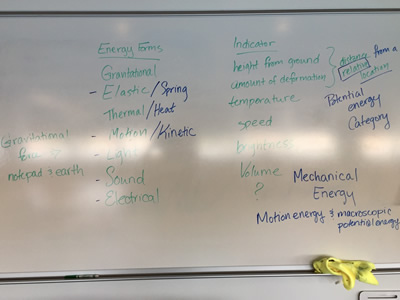 Energy Forms
Gravitational
- Elastic/Spring
Thermal/Heat
- Motion/Kinetic
- Light
- Sound
- Electrical
Gravitational
notepad & earth
Indicator
height from ground
amount of deformation
temperature
speed
brightness
Volume
?
distance from a
relative
location
Potential
energy
Category
Mechanical
Energy
Motion energy & macroscopic
potential energy